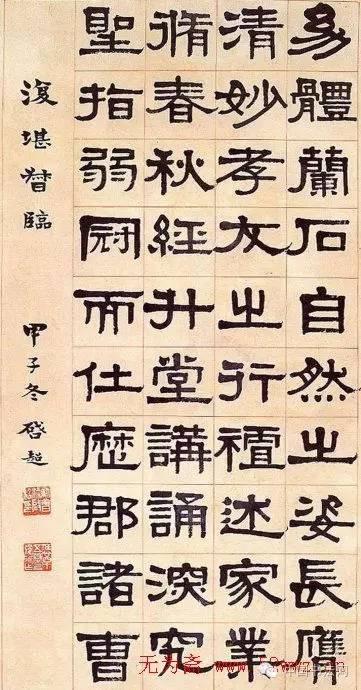 幼體蘭石自然之姿長膺
清妙孝友之行襢述家業
脩春秋經升堂講誦深究
聖指弱冠而仕歷郡諸曹
復堪督臨 甲子冬 啓超
无为斋
中国书法网